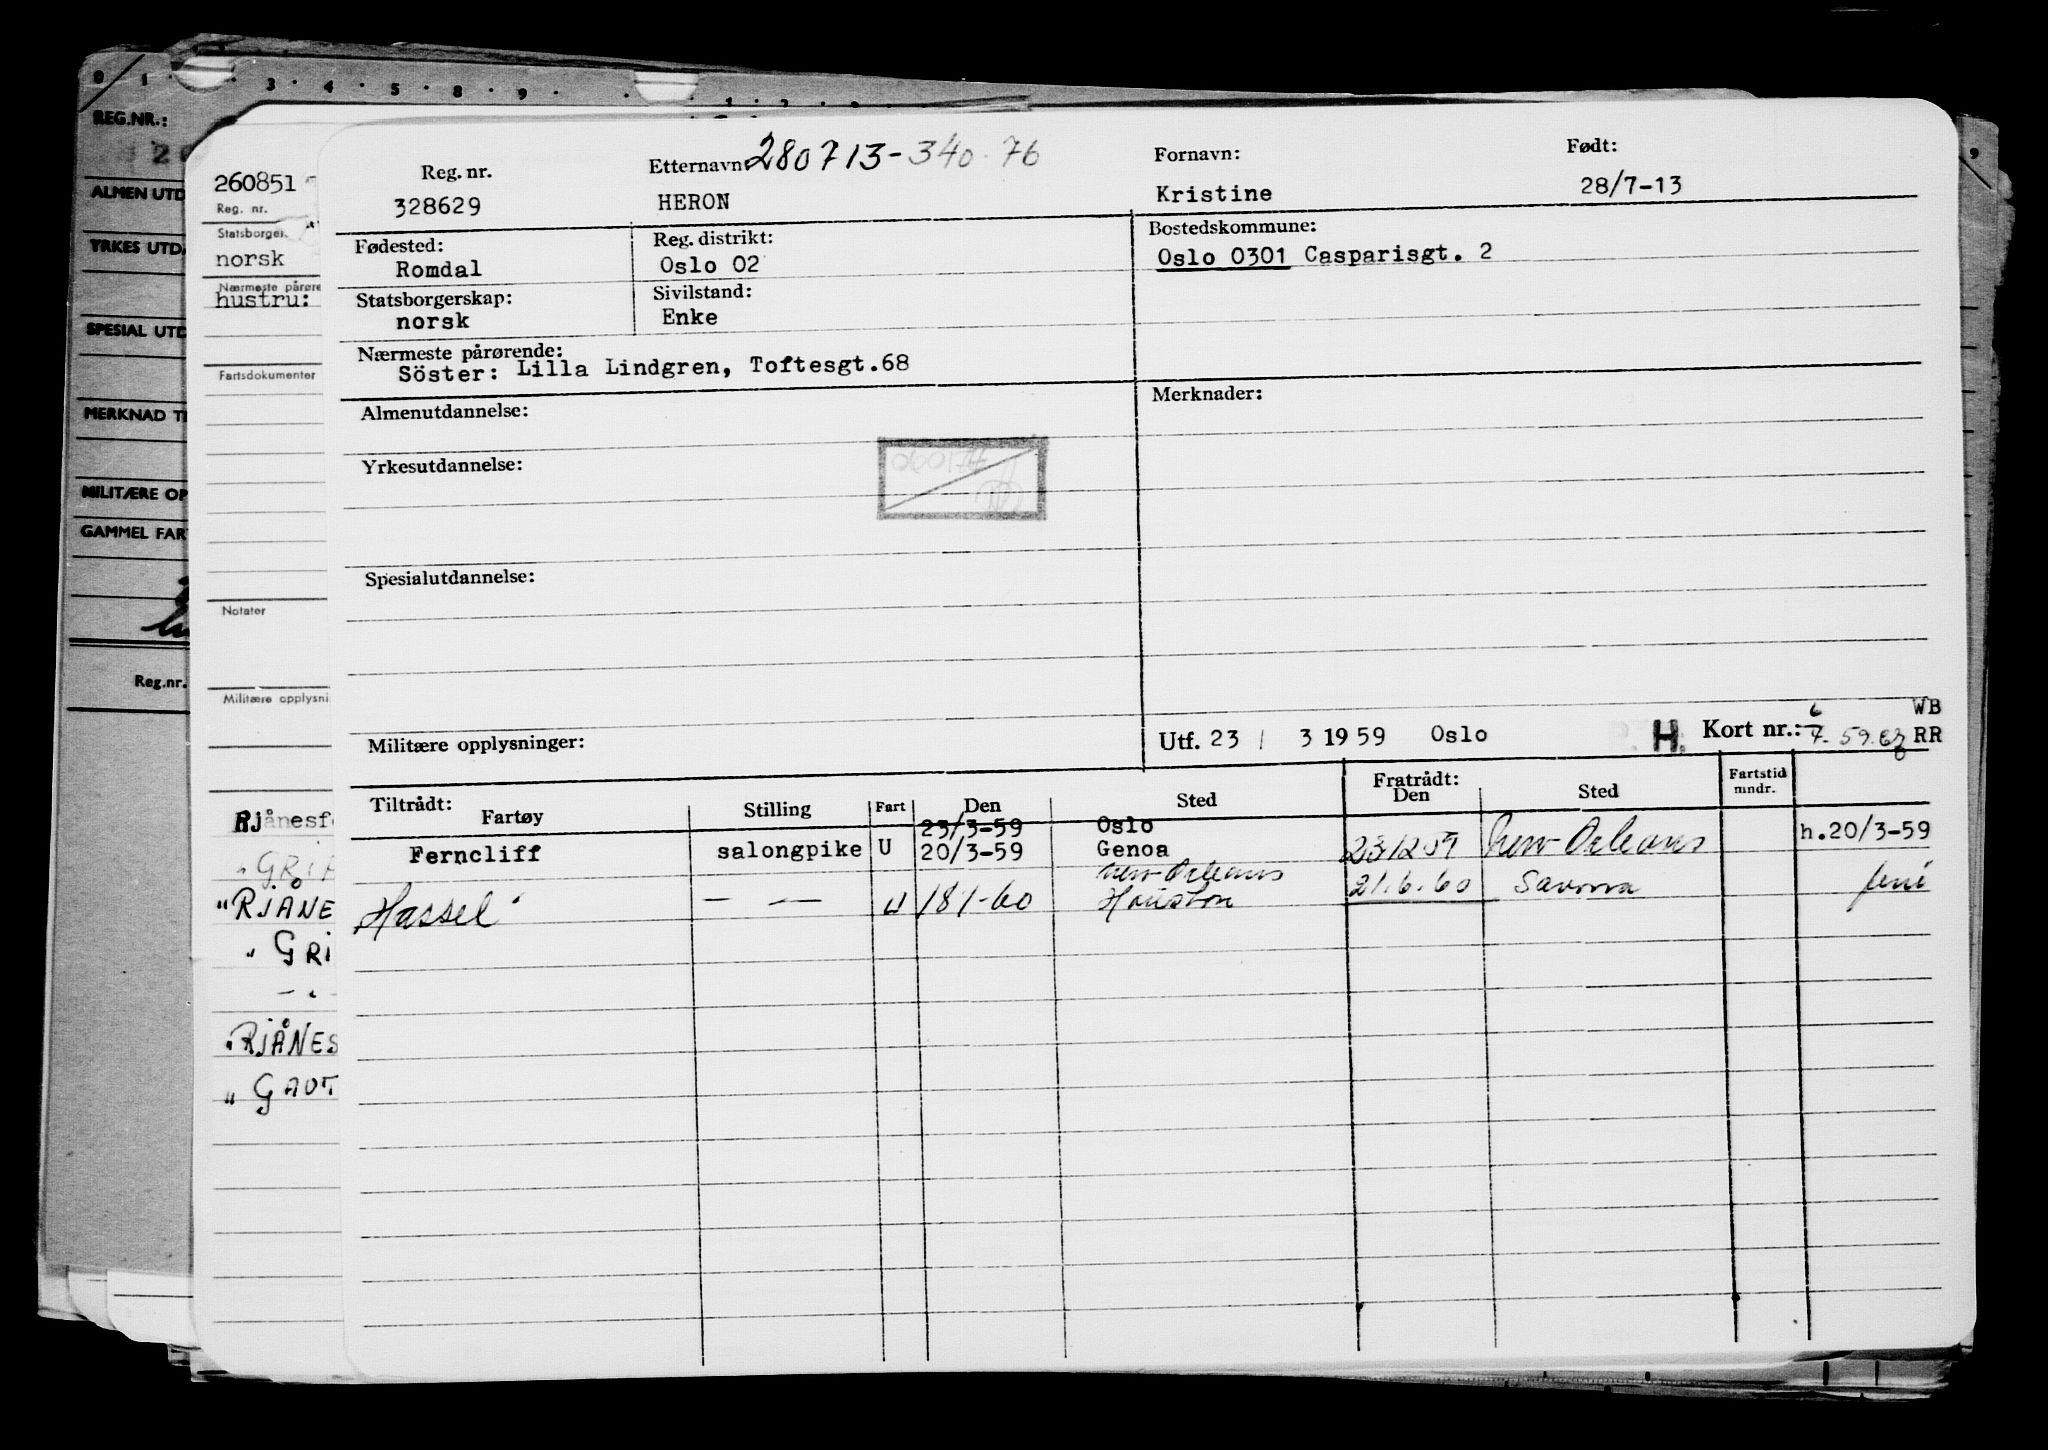 0 1 3 4 5 8 9 1 2 9
REG.NR.:
ALMEN UTD
YRKES UTDA
SPESIAL UTD
MERKNAD TI
MILITÆRE OP
GAMMEL FAR
Reg.nr.
260851
Reg. nr.
Statsborger
norsk
Nærmeste pårøre
hustru:
Fartsdokumenter
Notater
Militære opplysni
Rjånesf
" GRI
" RJÅNE
" GRI
" RJÅNES
" GAUT
Reg. nr. Etternavn: 280713-340.76 Fornavn: Født:
328629 HERON Kristine 28/7-13
Fødested: Reg. distrikt: Bostedskommune:
Romdal Oslo 02 Oslo 0301 Casparisgt. 2
Statsborgerskap: Sivilstand:
norsk Enke
Nærmeste pårørende:
Söster: Lilla Lindgren, Toftesgt.68
Almenutdannelse: Merknader:
Yrkesutdannelse: 060177
Spesialutdannelse:
Militære opplysninger: Utf. 23 / 3 1959 Oslo H. Kort nr.: 6 WB
7. 59. RR
Tiltrådt: Fratrådt:
Fartøy Stilling Fart Den Sted Den Sted Fartstid mndr.
23/3-59 Oslo
Ferncliff salongpike U 20/3-59 Genoa 23/12 59 New Orleans h.20/3-59
New Orleans
Hassel " — — U 18/1-60 Houston 21.6.60 Savona